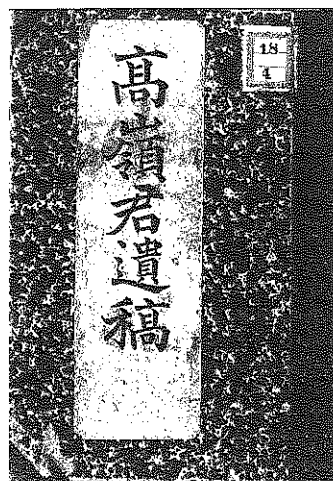 高嶺君遺稿
18
4